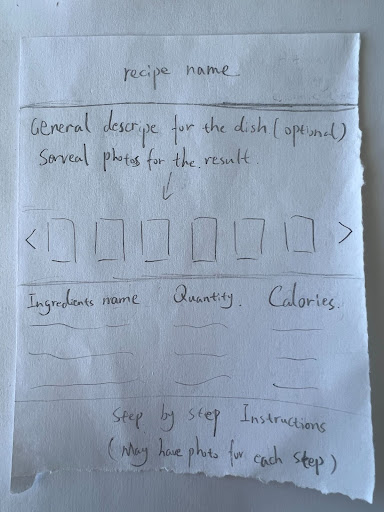 recipe name
General descripe for the dish (optional)
Serveal photos for the result.
< >
Ingredients name Quantity. Calories.
Step by step Instructions
(May have photo for each step)